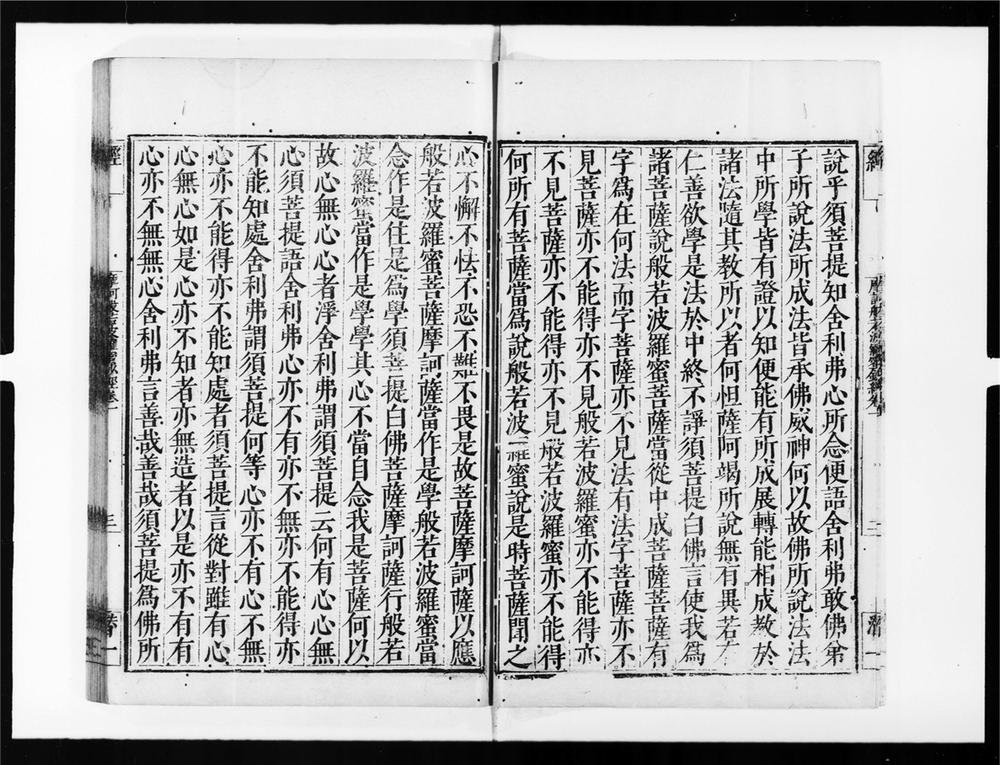 說乎須菩提知舍利弗心所念便語舍利弗敢佛弟
子所說法所成法皆承佛威神何以故佛所說法法
中所學皆有證以知便能有所成展轉能相成教於
諸法隨其教所以者何怛薩阿竭所說無有異若有
仁善欲學是法於中終不諍須菩提白佛言使我為
諸菩薩說般若波羅蜜菩薩當從中成菩薩菩薩有
字為在何法而字菩薩亦不見法有法字菩薩亦不
見菩薩亦不能得亦不見般若波羅蜜亦不能得亦
不見菩薩亦不能得亦不見般若波羅蜜亦不能得
何所有菩薩當為說般若波羅蜜說是時菩薩聞之
心不懈不怯不恐不難不畏是故菩薩摩訶薩以應
般若波羅蜜菩薩摩訶薩當作是學般若波羅蜜當
念作是住是為學須菩提白佛菩薩摩訶薩行般若
波羅蜜當作是學學其心不當自念我是菩薩何以
故心無心心者淨舍利弗謂須菩提云何有心心無
心須菩提語舍利弗心亦不有亦不無亦不能得亦
不能知處舍利弗謂須菩提何等心亦不有心不無
心亦不能得亦不能知處者須菩提言從對雖有心
心無心如是心亦不知者亦無造者以是亦不有有
心亦不無無心舍利弗言善哉善哉須菩提為佛所
經
三